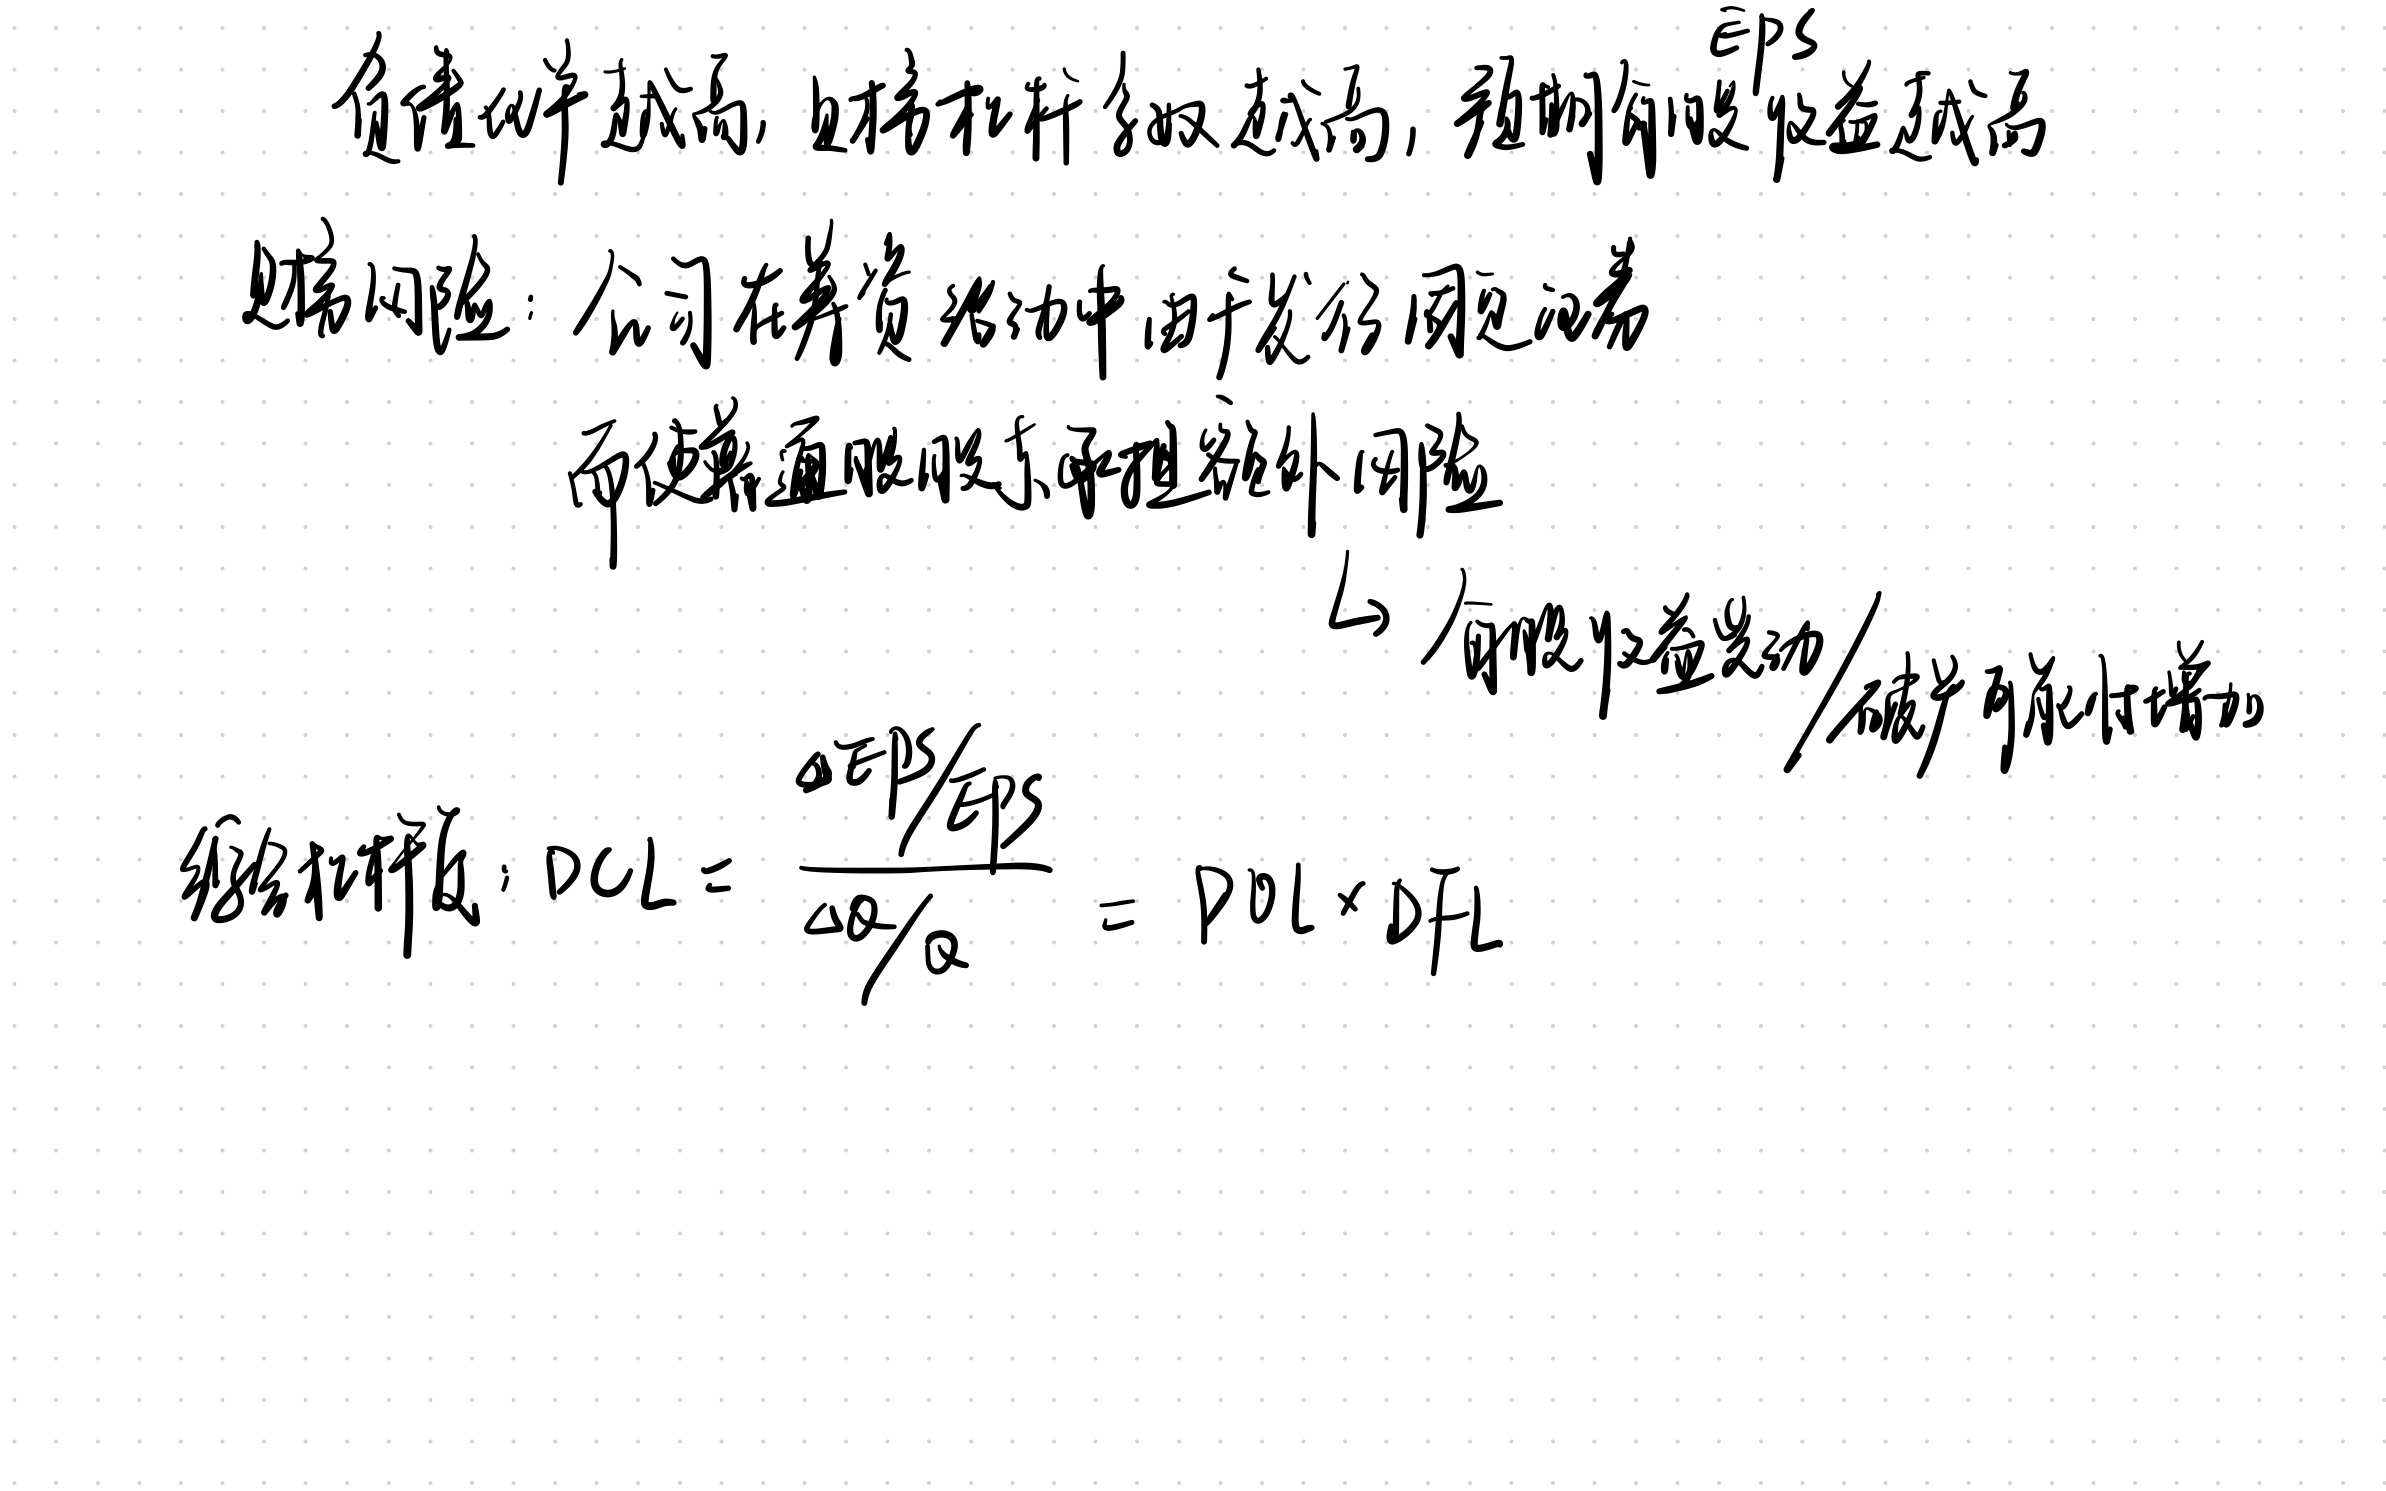 EPS
负债比率越高，财务杠杆系数越大，预期每股收益越大
财务风险：公司在筹资活动中由于发行固定证券
而使普通股股东承担额外风险
↳ 每股收益变动/破产可能性增加
综合杠杆：DCL = (ΔEPS/EPS)/(ΔQ/Q) = DOL × DFL